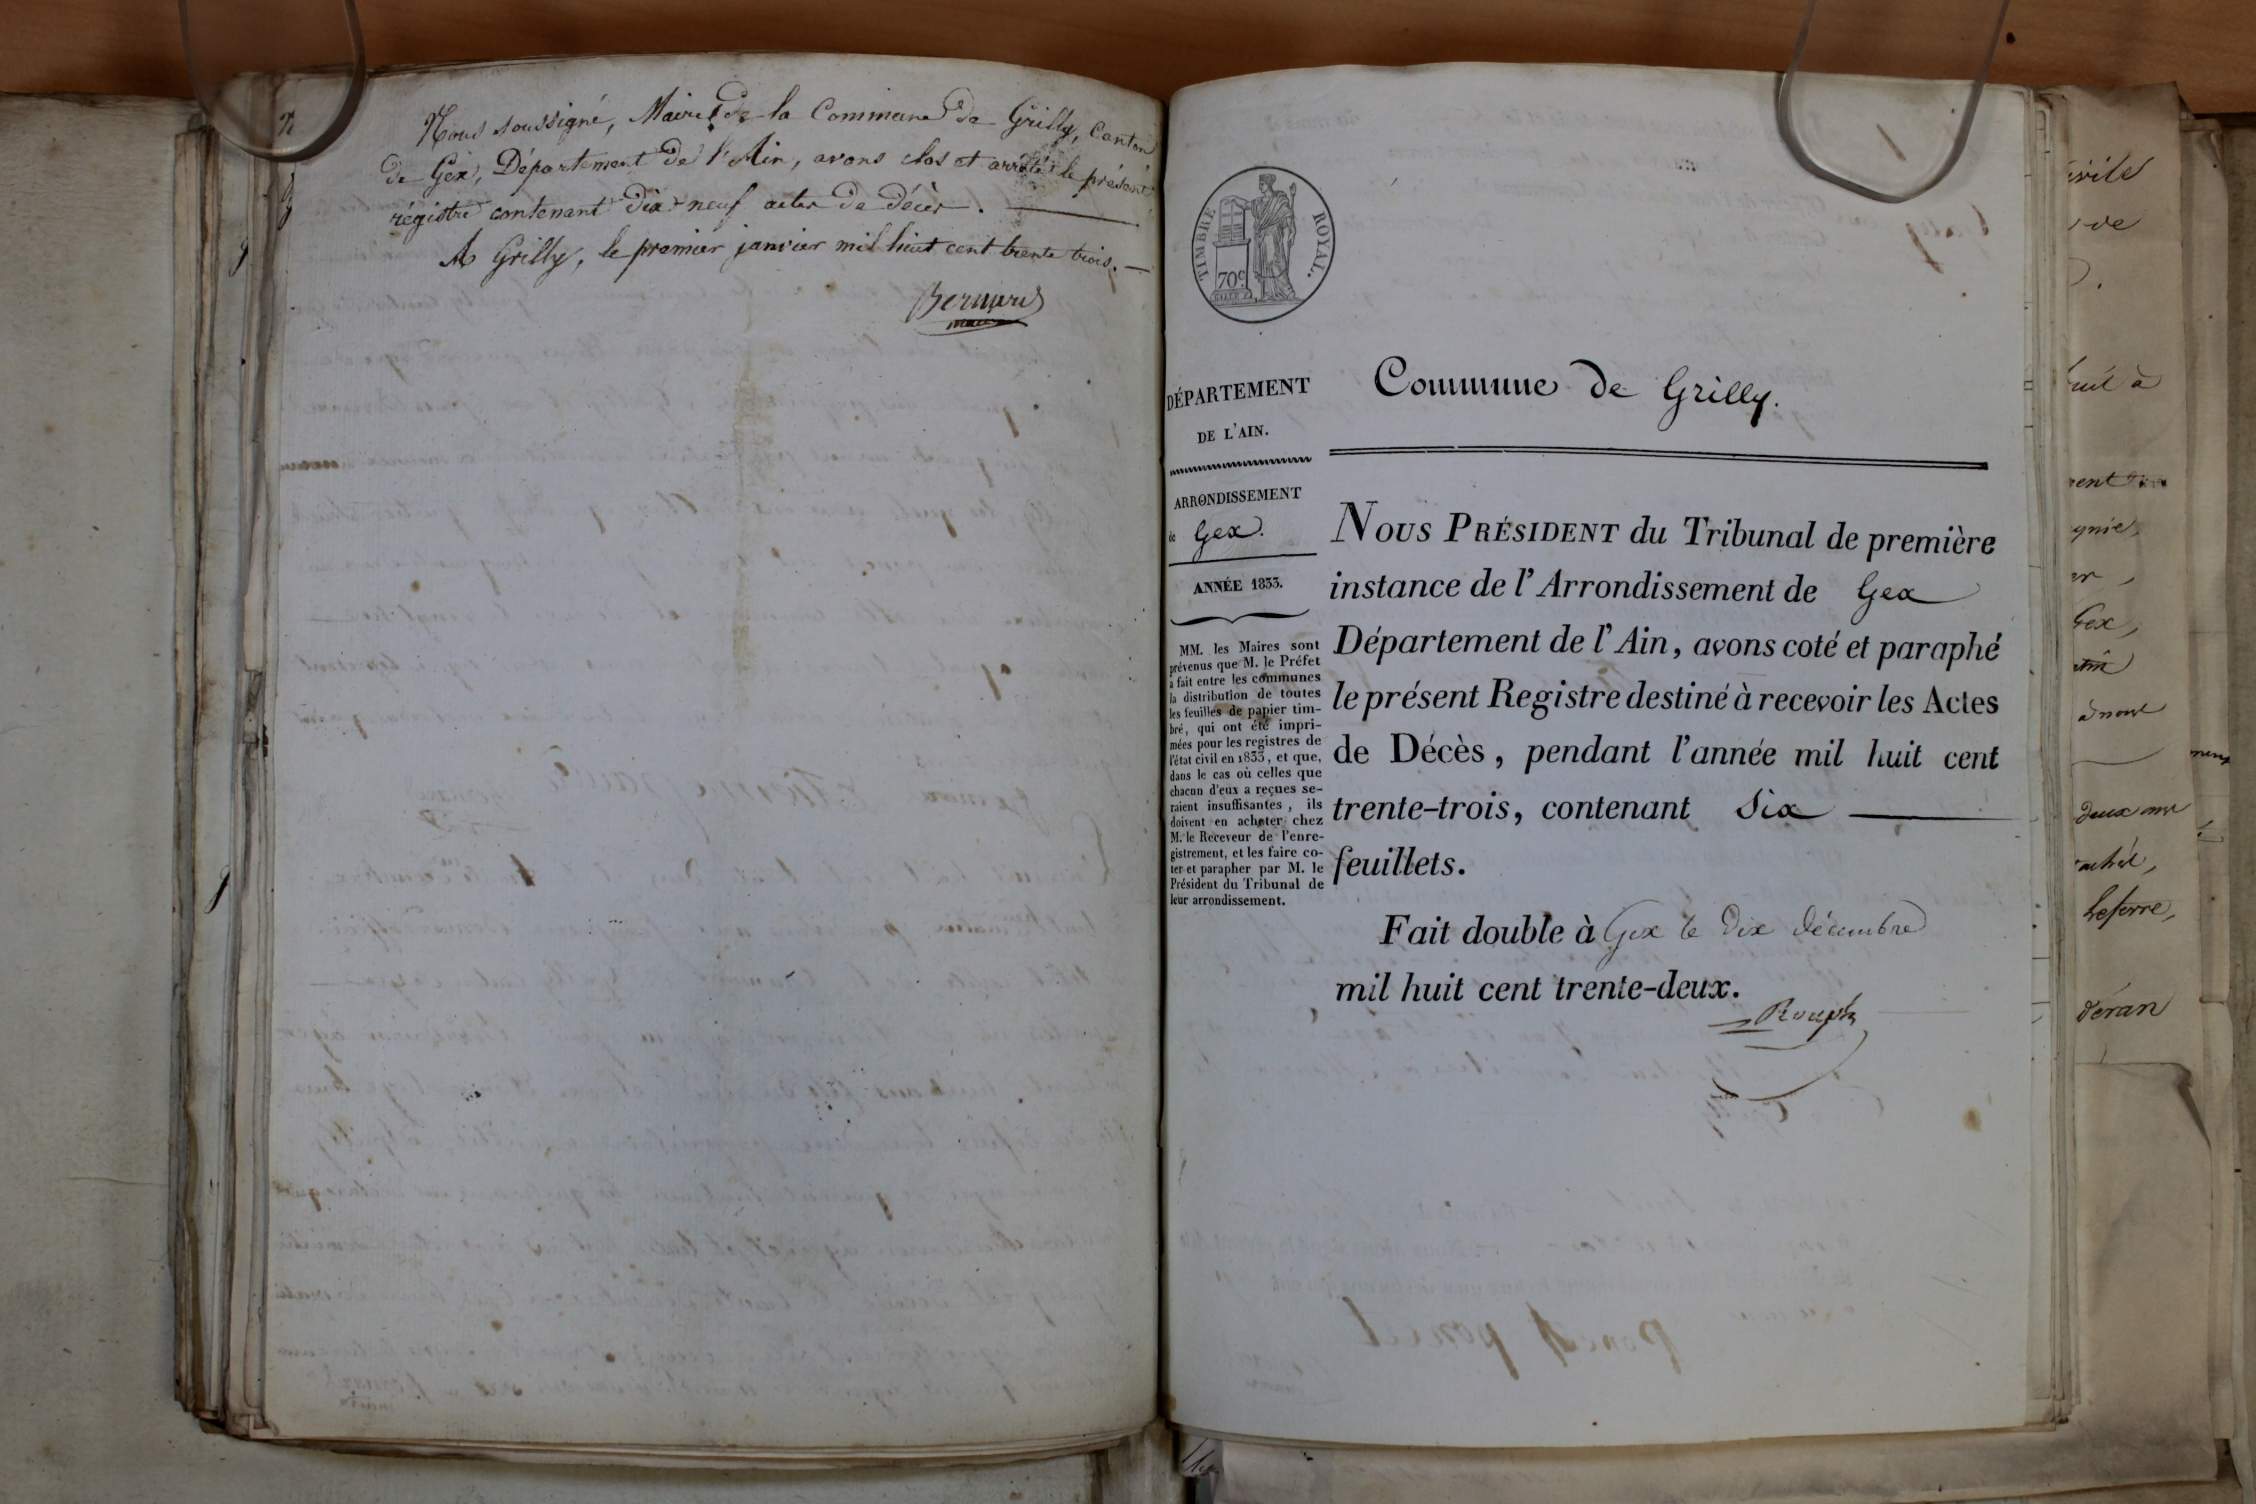 Nous soussigné, Maire de la Commune de Grilly, Canton
de Gex, Département de l'Ain, avons clos et arrêté le présent
régistre contenant dix-neuf actes de décès.
A Grilly, le premier janvier mil huit cent trente trois.
Bernard
maire
TIMBRE ROYAL.
70c
1
DÉPARTEMENT
DE L'AIN.
ARRONDISSEMENT
de Gex.
ANNÉE 1833.
MM. les Maires sont
prévenus que M. le Préfet
a fait entre les communes
la distribution de toutes
les feuilles de papier tim-
bré, qui ont été impri-
mées pour les registres de
l'état civil en 1833, et que,
dans le cas où celles que
chacun d'eux a reçues se-
raient insuffisantes, ils
doivent en acheter chez
M. le Receveur de l'enre-
gistrement, et les faire co-
ter et parapher par M. le
Président du Tribunal de
leur arrondissement.
Commune de Grilly.
NOUS PRÉSIDENT du Tribunal de première
instance de l'Arrondissement de Gex
Département de l'Ain, avons coté et paraphé
le présent Registre destiné à recevoir les Actes
de Décès, pendant l'année mil huit cent
trente-trois, contenant Six
feuillets.
Fait double à Gex le dix décembre
mil huit cent trente-deux.